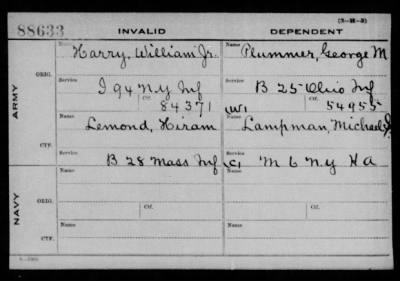 (3-H-3)
88633 INVALID DEPENDENT
ARMY
ORIG.
Name Harry, William Jr. Name Plummer, George M
Service I 94 N.Y. Inf Service B 25 Ohio Inf
Ctf. 84371 W1 Ctf. 54955
CTF.
Name Lemond, Hiram Name Lampman, Michael
Service B 28 Mass Inf Service C1 M 6 N.Y. H A
NAVY
ORIG.
Name Name
Service Ctf. Service Ctf.
CTF.
Name Name
Service Service